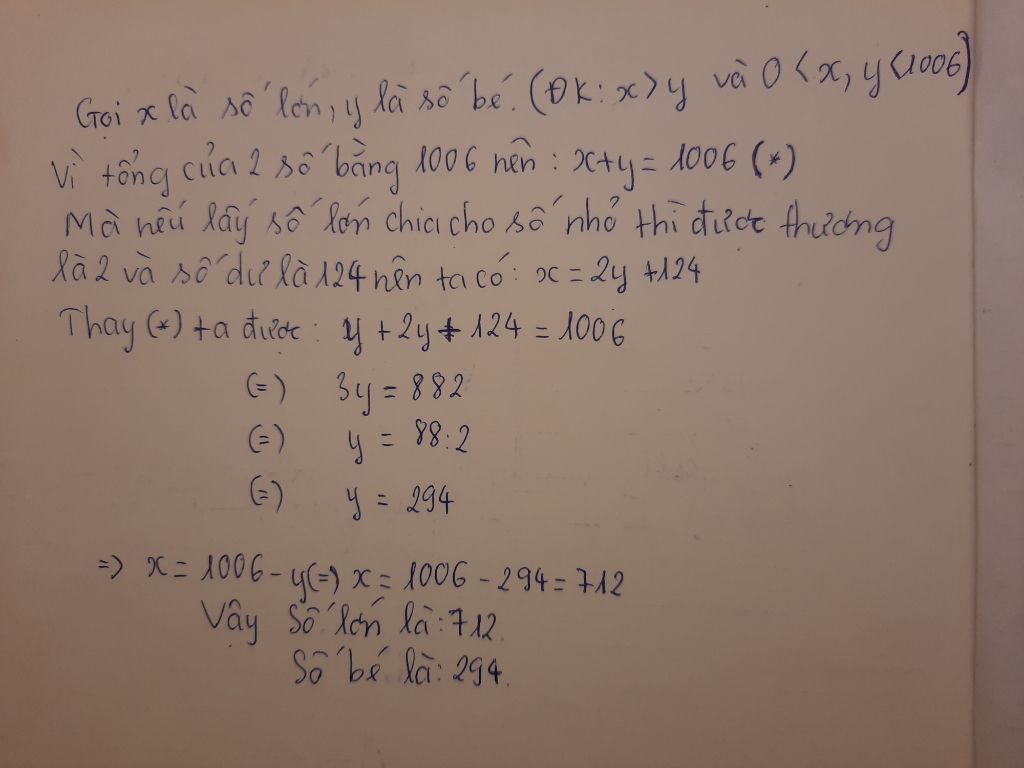 Gọi x là số lớn, y là số bé. (ĐK: x > y và 0 < x, y < 1006)
Vì tổng của 2 số bằng 1006 nên : x+y = 1006 (*)
Mà nếu lấy số lớn chia cho số nhỏ thì được thương
là 2 và số dư là 124 nên ta có: x = 2y + 124
Thay (*) ta được: y + 2y + 124 = 1006
(=) 3y = 882
(=) y = 88:2
(=) y = 294
=> x = 1006 - y (=) x = 1006 - 294 = 712
Vậy Số lớn là: 712.
Số bé là: 294.